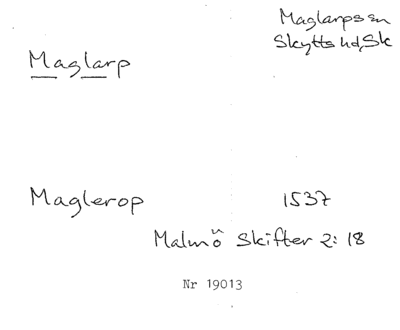 Maglarps sn
Skytts hd, Sk
Maglarp
Maglerop 1537
Malmö Skifter 2: 18
Nr 19013